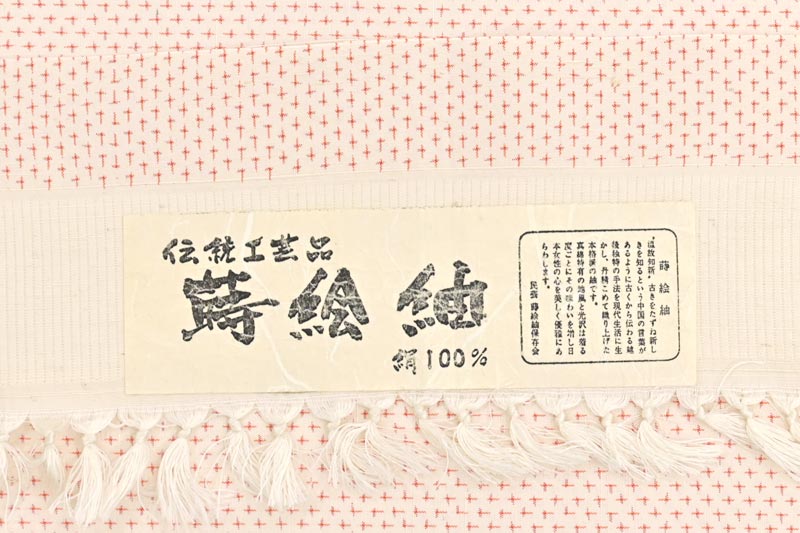 伝統工芸品
蒔絵紬
絹100%
蒔絵紬
"温故知新"古きをたずね新し
きを知るという中国の言葉が
あるように古くから伝わる
後独特の手法を現代生活に生
かし、丹精こめて織り上げた
本格派の紬です。
真綿特有の地風と光沢は着る
度ごとにその味わいを増し日
本女性の心を美しく優雅にあ
らわします。
民芸 蒔絵紬保存会